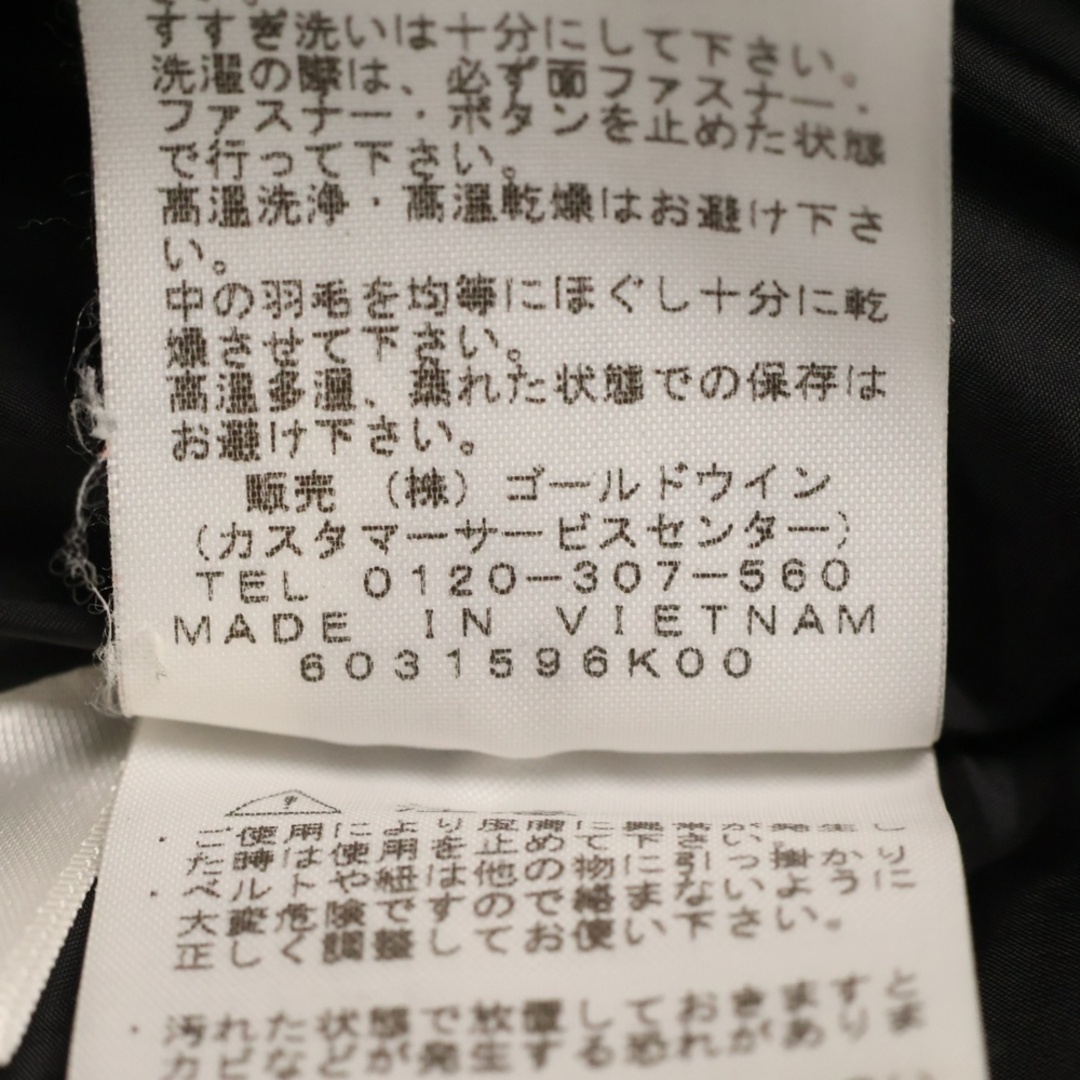 すすぎ洗いは十分にして下さい。
洗濯の際は、必ず面ファスナー・
ファスナー・ボタンを止めた状態
で行って下さい。
高温洗浄・高温乾燥はお避け下さ
い。
中の羽毛を均等にほぐし十分に乾
燥させて下さい。
高温多湿、蒸れた状態での保存は
お避け下さい。
販売 (株) ゴールドウイン
(カスタマーサービスセンター)
TEL 0120-307-560
MADE IN VIETNAM
6031596K00
・ご使用により
た時は使用を止めて下さい。
・ベルトや紐は他の物に引っ掛かり
大変危険ですので絡まないように
正しく調整してお使い下さい。
・汚れた状態で放置しておきますと
カビなどが発生する恐れがありま